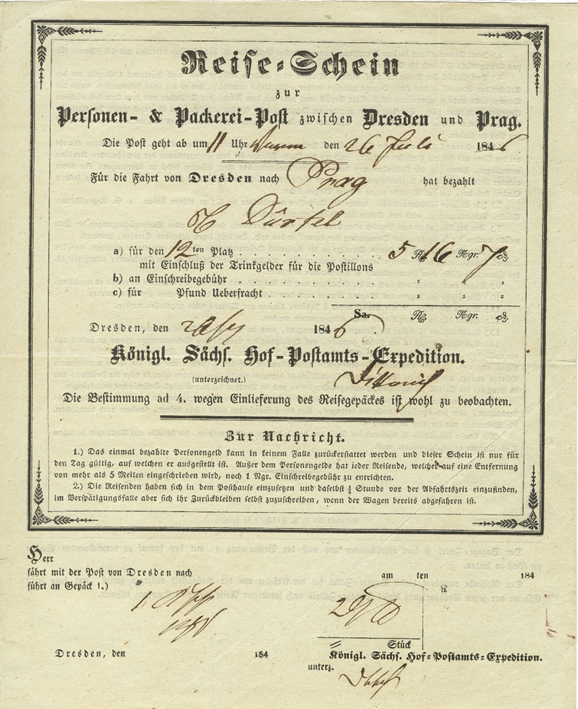 Reise-Schein
zur
Personen- & Packerei-Post zwischen Dresden und Prag.
Die Post geht ab um 11 Uhr den 26 Juli 1846
Für die Fahrt von Dresden nach Prag hat bezahlt
a) für den 12ten Platz . . . . . . . . . . . . . . . 5 16 Ngr. 7
mit Einschluß der Trinkgelder für die Postillons
b) an Einschreibegebühr . . . . . . . . . . . . . .
c) für Pfund Ueberfracht . . . . . . . . . . . . .
Sa. Ngr.
Dresden, den 1846
Königl. Sächs. Hof-Postamts-Expedition.
(unterzeichnet.)
Die Bestimmung ad 4. wegen Einlieferung des Reisegepäckes ist wohl zu beobachten.
Zur Nachricht.
1.) Das einmal bezahlte Personengeld kann in keinem Falle zurückerstattet werden und dieser Schein ist nur für
den Tag gültig, auf welchen er ausgestellt ist. Außer dem Personengelde hat jeder Reisende, welcher auf eine Entfernung
von mehr als 5 Meilen eingeschrieben wird, noch 1 Ngr. Einschreibegebühr zu entrichten.
2.) Die Reisenden haben sich in dem Posthause einzufinden und daselbst ¼ Stunde vor der Abfahrtszeit einzufinden,
im Verspätigungsfalle aber sich ihr Zurückbleiben selbst zuzuschreiben, wenn der Wagen bereits abgefahren ist.
Herr
fährt mit der Post von Dresden nach am ten 184
führt an Gepäck 1.)
Stück
Dresden, den 184 Königl. Sächs. Hof-Postamts-Expedition.
unterz.